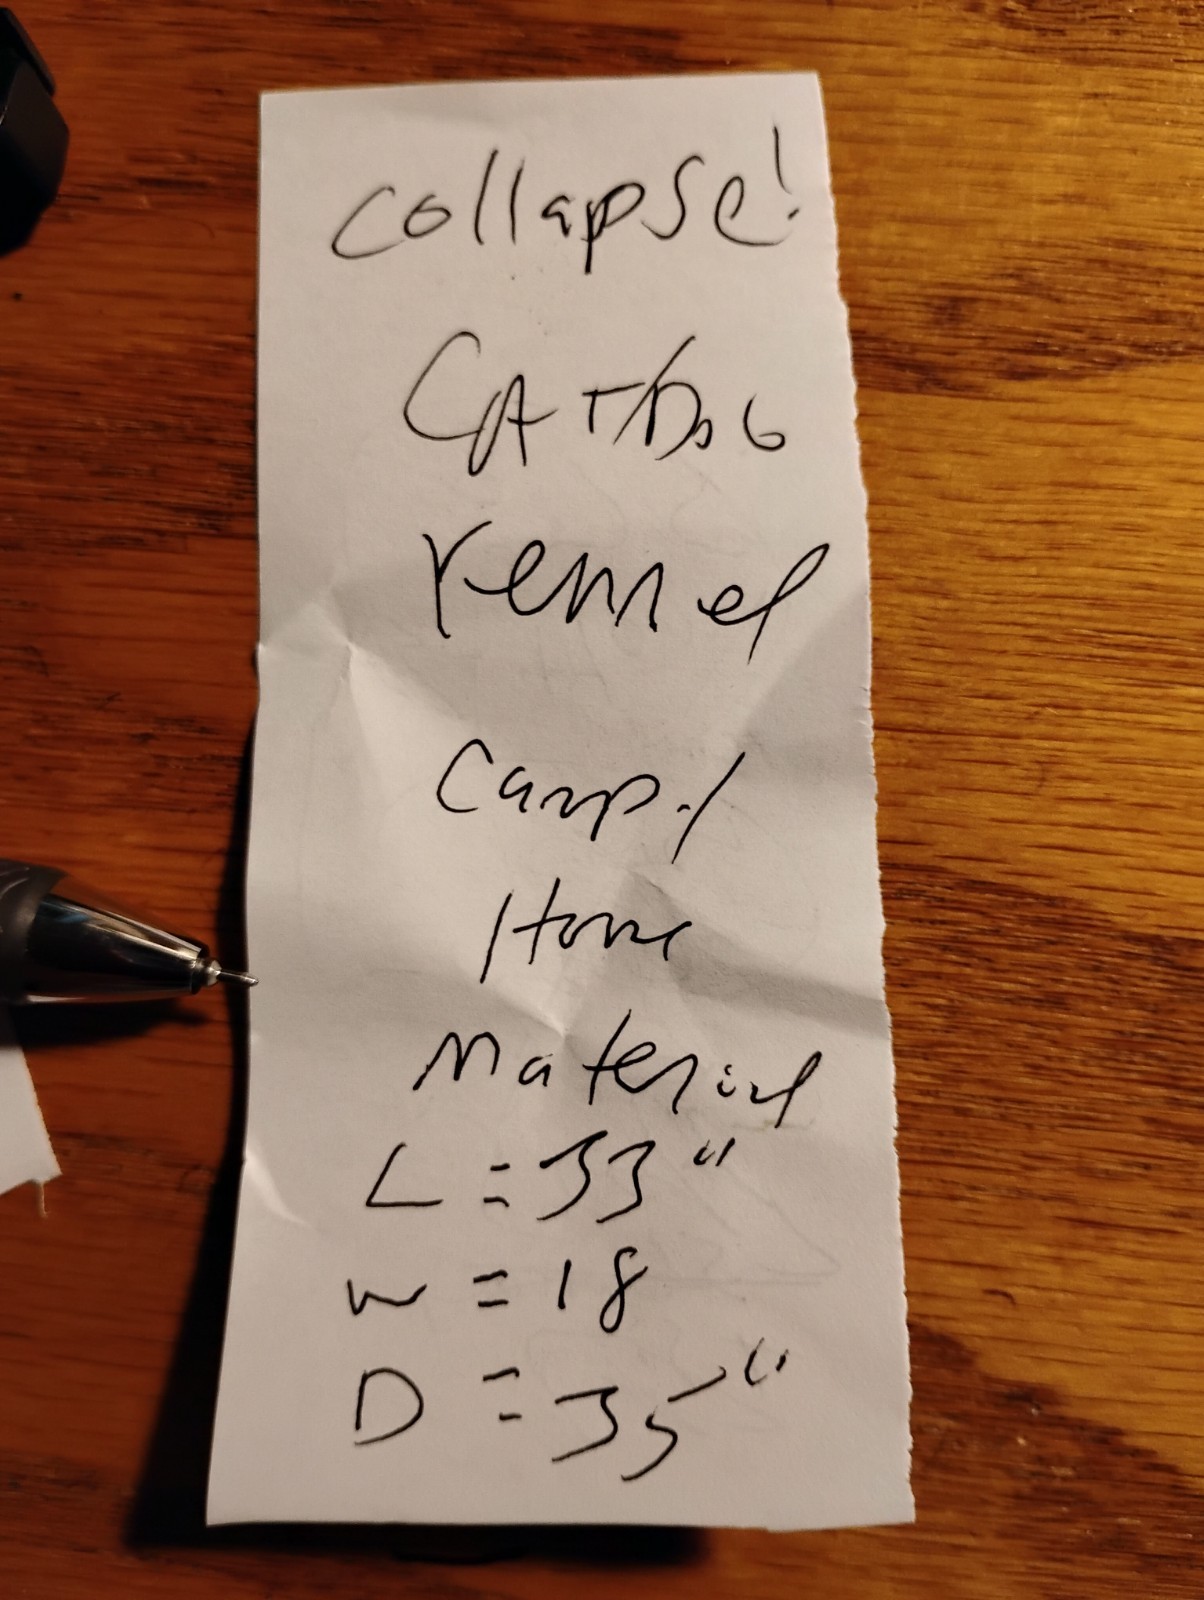 collapse!
CAT/DoG
Kennel
Camp./
Home
Material
L = 33"
W = 18
D = 35"